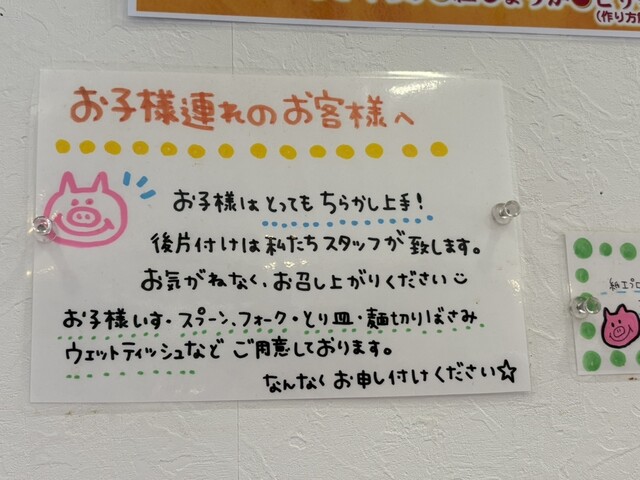 (作り方
お子様連れのお客様へ
お子様はとってもちらかし上手!
後片付けは私たちスタッフが致します。
お気がねなく、お召し上がりください
お子様いす・スプーン、フォーク・とり皿・麺切りばさみ
ウェットティッシュなど ご用意しております。
なんなくお申し付けください☆
紙エプロ